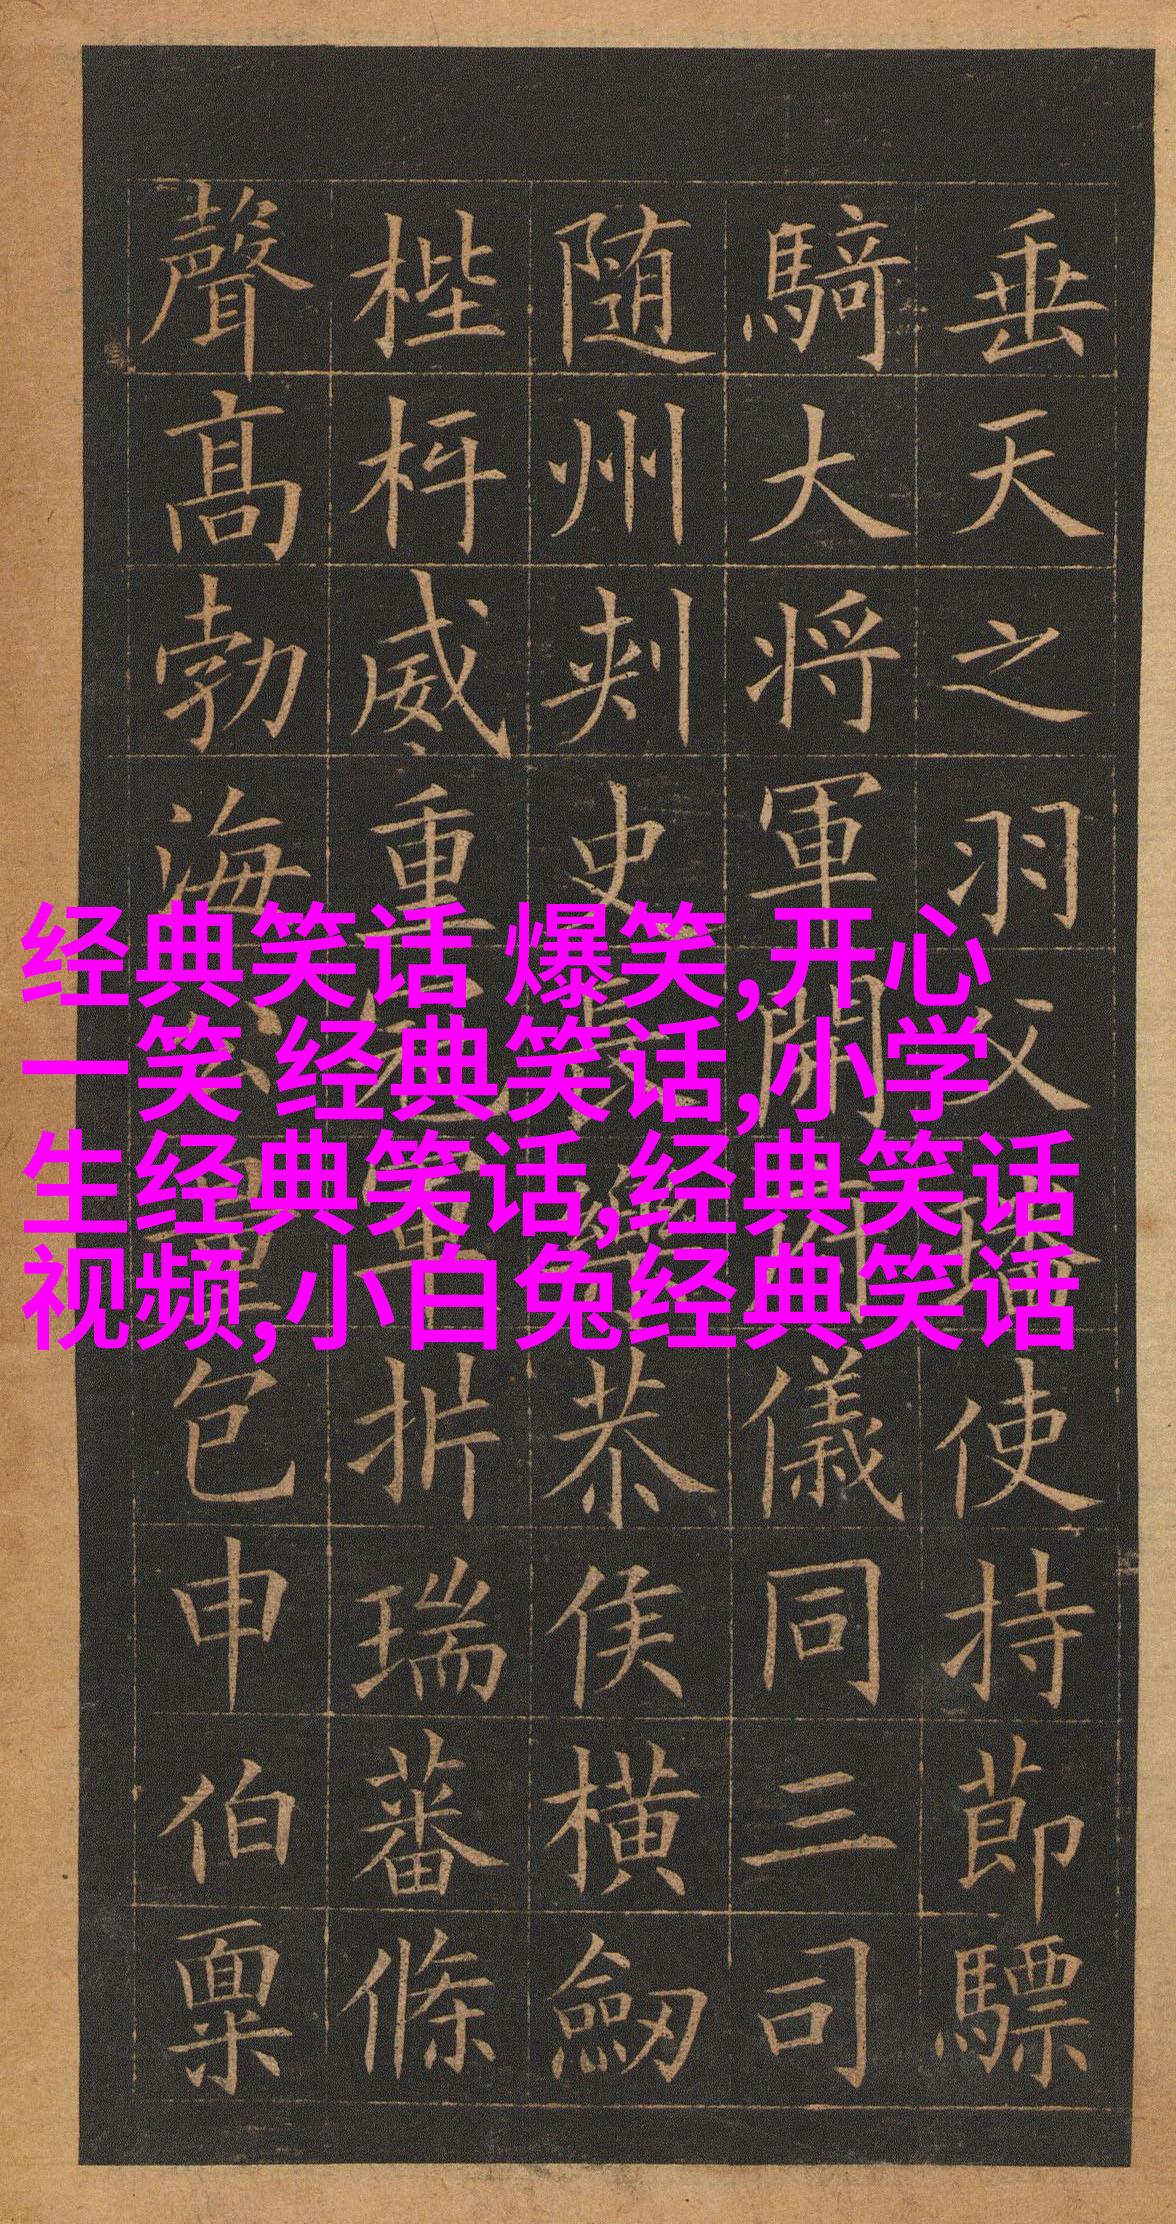 垂天之羽父使持節驃
騎大将軍開儀同三司
随州刾史恭侯橫劒
梐枑威重軍扸瑞蕃條
聲高勃海包申伯稟
经典笑话 爆笑,开心
一笑 经典笑话,小学
生经典笑话,经典笑话
视频,小白兔经典笑话